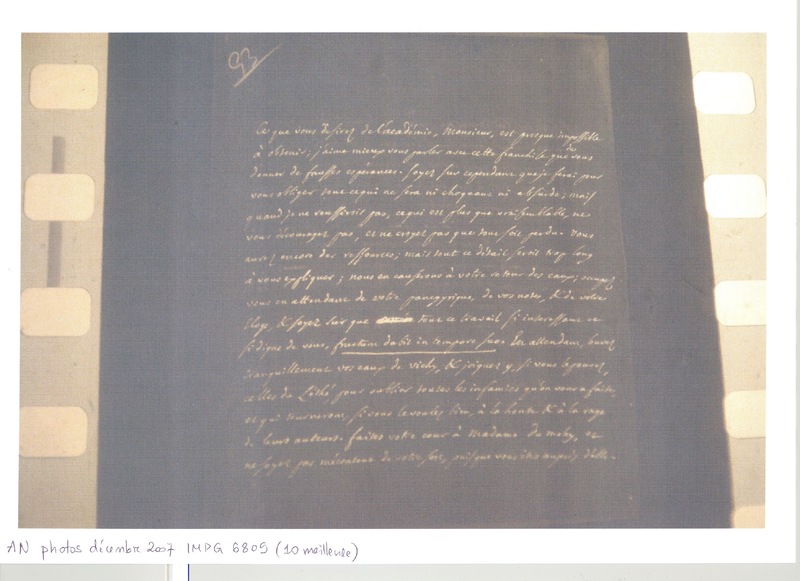 93
Ce que vous desirez de l'académie, Monsieur, est presque impossible
à obtenir; j'aime mieux vous parler avec cette franchise que de vous
donner de fausses esperances. soyez sur cependant que je ferai pour
vous obliger tout ce qui ne sera ni choquant ni absurde; mais
quand je ne reussirois pas, ce qui est plus que vraisemblable, ne
vous découragez pas, et ne croyez pas que tout soit perdu. vous
aurez encore des ressources; mais tout ce détail seroit trop long
à vous expliquer; nous en causerons à votre retour des eaux; occupez
vous en attendant de votre panegyrique, de vos notes, & de votre
eloge, & soyez sur que tout ce travail si interessant et
si digne de vous, fructum dabit in tempore suo. En attendant, buvez
tranquillement vos eaux de vichy, & joignez y, si vous le pouvez,
celles du Léthé pour oublier toutes les infamies qu'on vous a faites,
et qui tourneront, si vous le voulez bien, à la honte & à la rage
de leurs auteurs. faites votre cour à Madame de , et
ne soyez pas mécontent de votre sort, puisque vous êtes auprès d'elle.
AN photos décembre 2007 IMPG 6805 (10 meilleure)